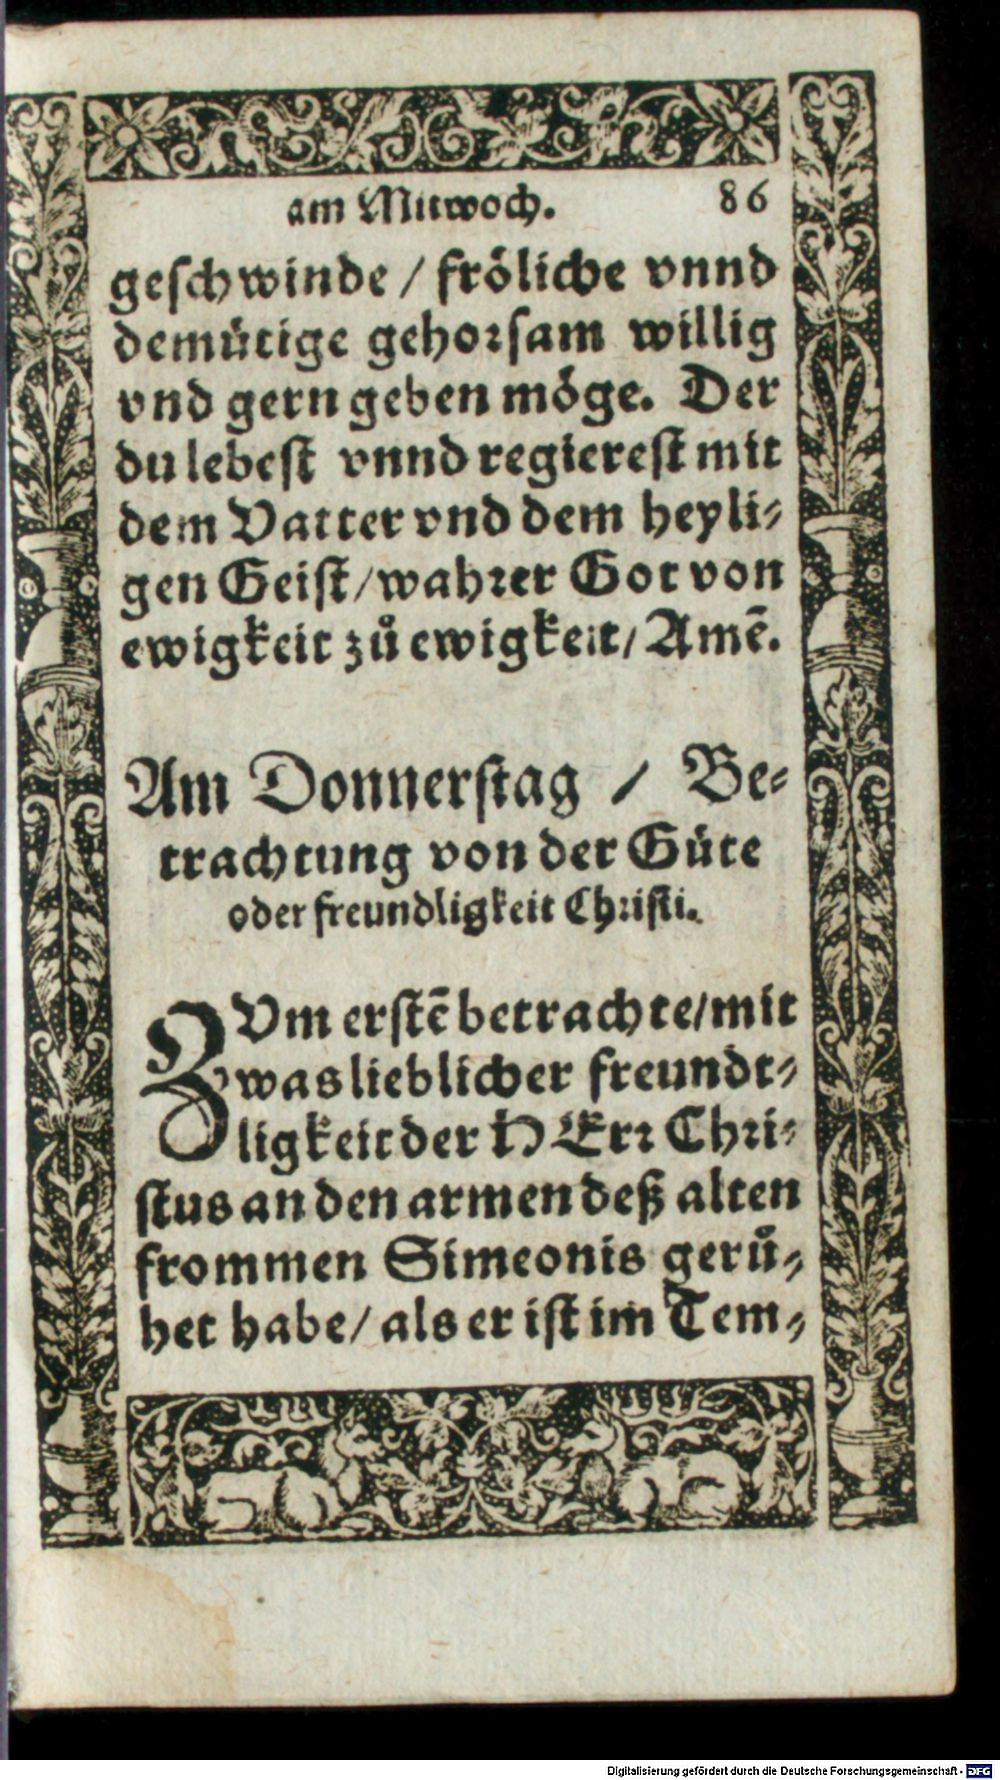 am Mitwoch. 86
geschwinde / fröliche vnnd
demütige gehorsam willig
vnd gern geben möge. Der
du lebest vnnd regierest mit
dem Vatter vnd dem heyli-
gen Geist / wahrer Got von
ewigkeit zů ewigkeit / Amē.
Am Donnerstag / Be-
trachtung von der Güte
oder freundligkeit Christi.
ZVm erstē betrachte / mit
was lieblicher freundt-
ligkeit der HErr Chri-
stus an den armen deß alten
frommen Simeonis gerů-
het habe / als er ist im Tem-
Digitalisierung gefördert durch die Deutsche Forschungsgemeinschaft - DFG